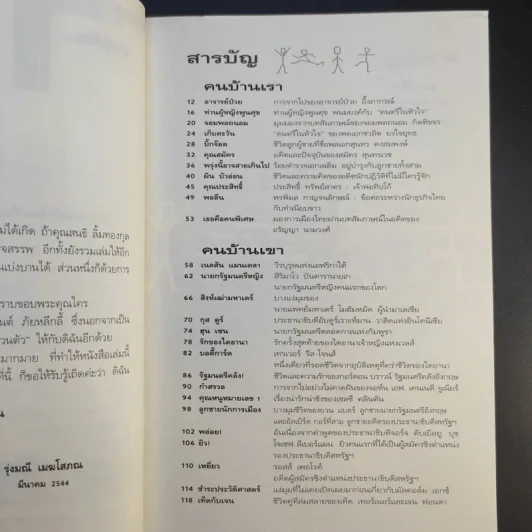 สารบัญ
คนบ้านเรา
12 อาจารย์ป๋วย การจากไปของอาจารย์ป๋วย อึ๊งภากรณ์
16 ท่านผู้หญิงพูนศุข ท่านผู้หญิงพูนศุข พนมยงค์กับ "ดนตรีในหัวใจ"
20 จอมพลถนอม มุมมองจากบทสัมภาษณ์ของจอมพลถนอม กิตติขจร
24 เก็บตะวัน "ดนตรีในหัวใจ" ของพลเอกชวลิต ยงใจยุทธ
28 บิ๊กจ๊อด ชีวิตลูกผู้ชายที่ชื่อพลเอกสุนทร คงสมพงษ์
32 คุณสมัคร อดีตและปัจจุบันของสมัคร สุนทรเวช
36 พรุ่งนี้อาจสายเกินไป ร้อยตำรวจเอกเฉลิม อยู่บำรุงกับลูกชายทั้งสาม
40 ผิน บัวอ่อน ชีวิตและความคิดของอดีตนักปฏิวัติที่ไม่มีใครรู้จัก
45 คุณประสิทธิ์ ประสิทธิ์ ทรัพย์สาคร : เจ้าพ่อทิปโก้
49 พอลีน พรพิมล กาญจนลักษณ์ : ข้อต่อระหว่างนักธุรกิจไทย
กับทำเนียบขาว
53 เธอคือคนพิเศษ มองการเมืองไทยผ่านบทสัมภาษณ์ในอดีตของ
อรัญญา นามวงศ์
คนบ้านเขา
58 เนลสัน แมนเดลา วีรบุรุษแห่งแอฟริกาใต้
62 นายกรัฐมนตรีหญิง สิริมาโว บันดาราไนเก
นายกรัฐมนตรีหญิงคนแรกของโลก
66 สิงห์เฒ่ามหาเธร์ บางแง่มุมของ
นายแพทย์มหาเธร์ โมฮัมหมัด ผู้นำมาเลเซีย
70 กุส ดูร์ ประธานาธิบดีอับดูร์เราะห์มาน วาฮิดแห่งอินโดนีเซีย
74 ฮุน เซน นายกรัฐมนตรีตลอดกาลแห่งกัมพูชา
78 รักของไดอานา รักครั้งสุดท้ายของไดอาน่าเจ้าหญิงแห่งเวลส์
82 บอดี้การ์ด เทรเวอร์ รีส-โจนส์
หนึ่งเดียวที่รอดชีวิตจากอุบัติเหตุที่คร่าชีวิตของไดอานา
86 รัฐมนตรีคลัง! ชีวิตและความรักของกอร์ดอน บราวน์ รัฐมนตรีคลังอังกฤษ
90 กำสรวล การจากไปอย่างไม่คาดฝันของจอห์น เอฟ. เคนเนดี จูเนียร์
94 คุณหนูหมายเลข 1 เรื่องน่ารักน่าชังของเชลซี คลินตัน
98 ลูกชายนักการเมือง บางมุมชีวิตของยวน แบลร์ ลูกชายนายกรัฐมนตรีอังกฤษ
และอัลเบิร์ต กอร์ที่สาม ลูกชายอดีตรองประธานาธิบดีสหรัฐฯ
102 พล่อย! อันเนื่องจากคำพูดของประธานาธิบดีจอร์จ ดับเบิลยู. บุช
106 ยิว! โจเซฟ ลีเบอร์แมน ยิวคนแรกที่ได้เป็นผู้สมัครชิงตำแหน่ง
รองประธานาธิบดีสหรัฐฯ
110 เหยี่ยว รอสส์ เพอโรต์
อดีตผู้สมัครชิงตำแหน่งประธานาธิบดีสหรัฐฯ
114 ชำระประวัติศาสตร์ แง่มุมที่ไม่เคยเปิดเผยมาก่อนเกี่ยวกับมัลคอล์ม เอกซ์
118 เท็ดกับเจน ชีวิตคู่ที่ล่มสลายของเท็ด เทอร์เนอร์และเจน ฟอนดา
ม่ได้เกิด ถ้าคุณสนธิ ลิ้มทองกุล
จสรรพ อีกทั้งยังรวมเล่มให้อีก
แบ่งบานได้ ส่วนหนึ่งก็ด้วยการ
ราบขอบพระคุณใคร
นต์ ภัยหลีกลี้ ซึ่งนอกจากเป็น
วนตัว" ให้กับดิฉันอีกด้วย
มากมาย ที่ทำให้หนังสือเล่มนี้
ที่นี้ ก็ขอให้รับรู้เถิดค่ะว่า ดิฉัน
รุ่งมณี เมฆโสภณ
มีนาคม 2544